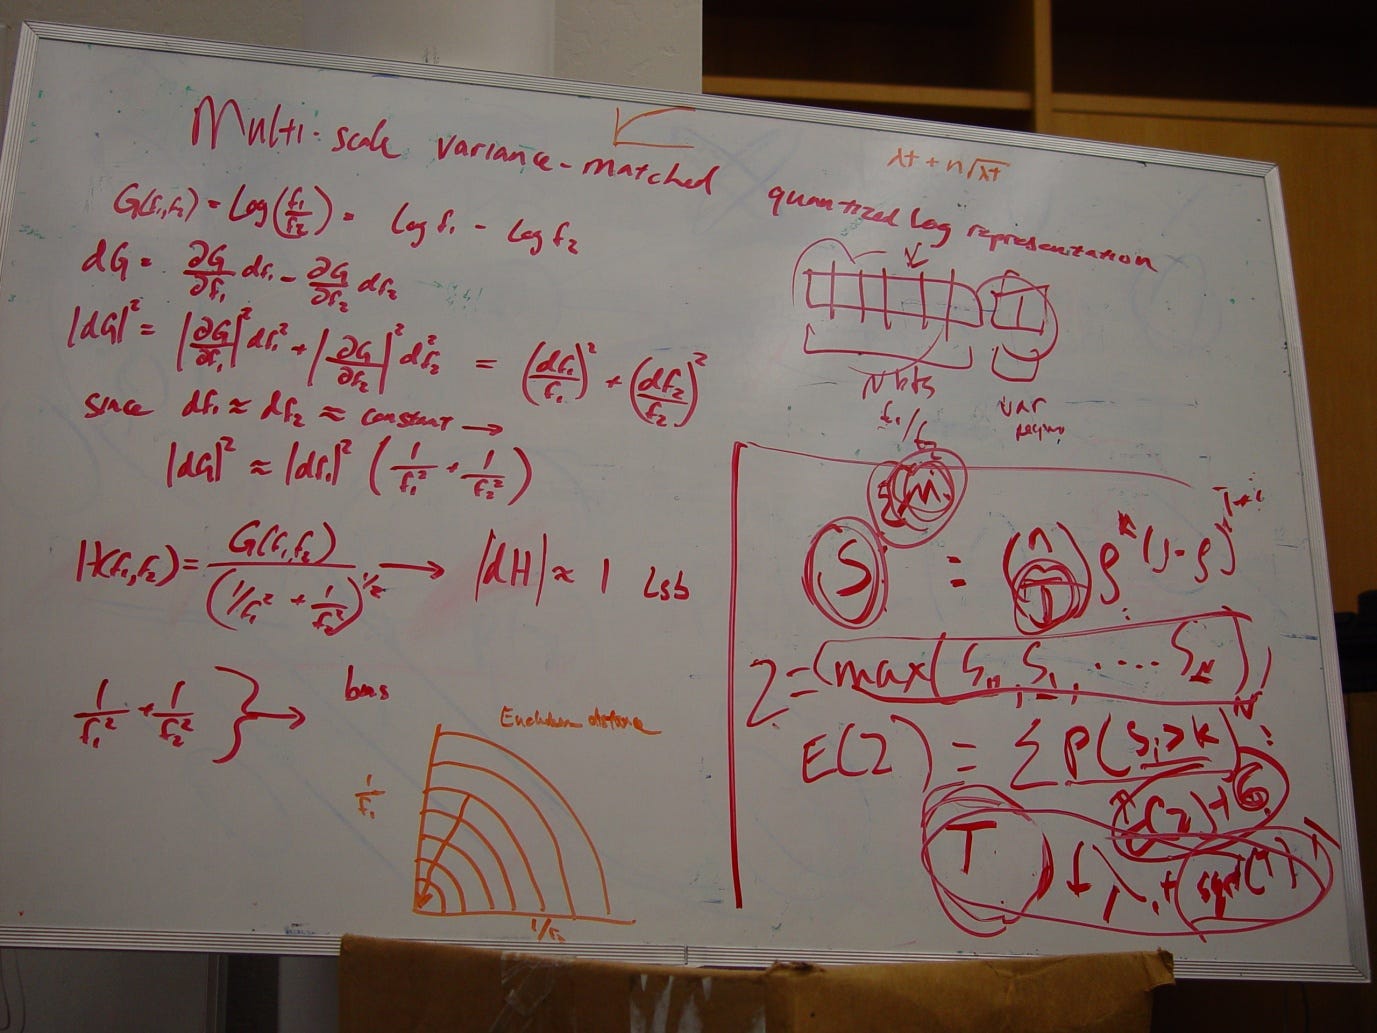 Multi-scale variance-matched quantized log representation
λt + n√λt
G(f₁,f₂) = Log(f₁/f₂) = Log f₁ - Log f₂
dG = ∂G/∂f₁ df₁ - ∂G/∂f₂ df₂
|dG|² = |∂G/∂f₁|² df₁² + |∂G/∂f₂|² df₂² = (df₁/f₁)² + (df₂/f₂)²
since df₁ ≈ df₂ ≈ constant →
|dG|² ≈ |df₁|² (1/f₁² + 1/f₂²)
H(f₁,f₂) = G(f₁,f₂) / (1/f₁² + 1/f₂²)^1/2 → |dH| ≈ 1 Lsb
1/f₁² + 1/f₂² } →
Euclidean distance
1/f₁
1/f₂
N bits
f₁/f₂
var
S = (n T) ρ^k (1-ρ)
Z = (max(S₁, S₁, .... S_N))
E(Z) = Σ P(Sᵢ > k)
T
sqrt(T)